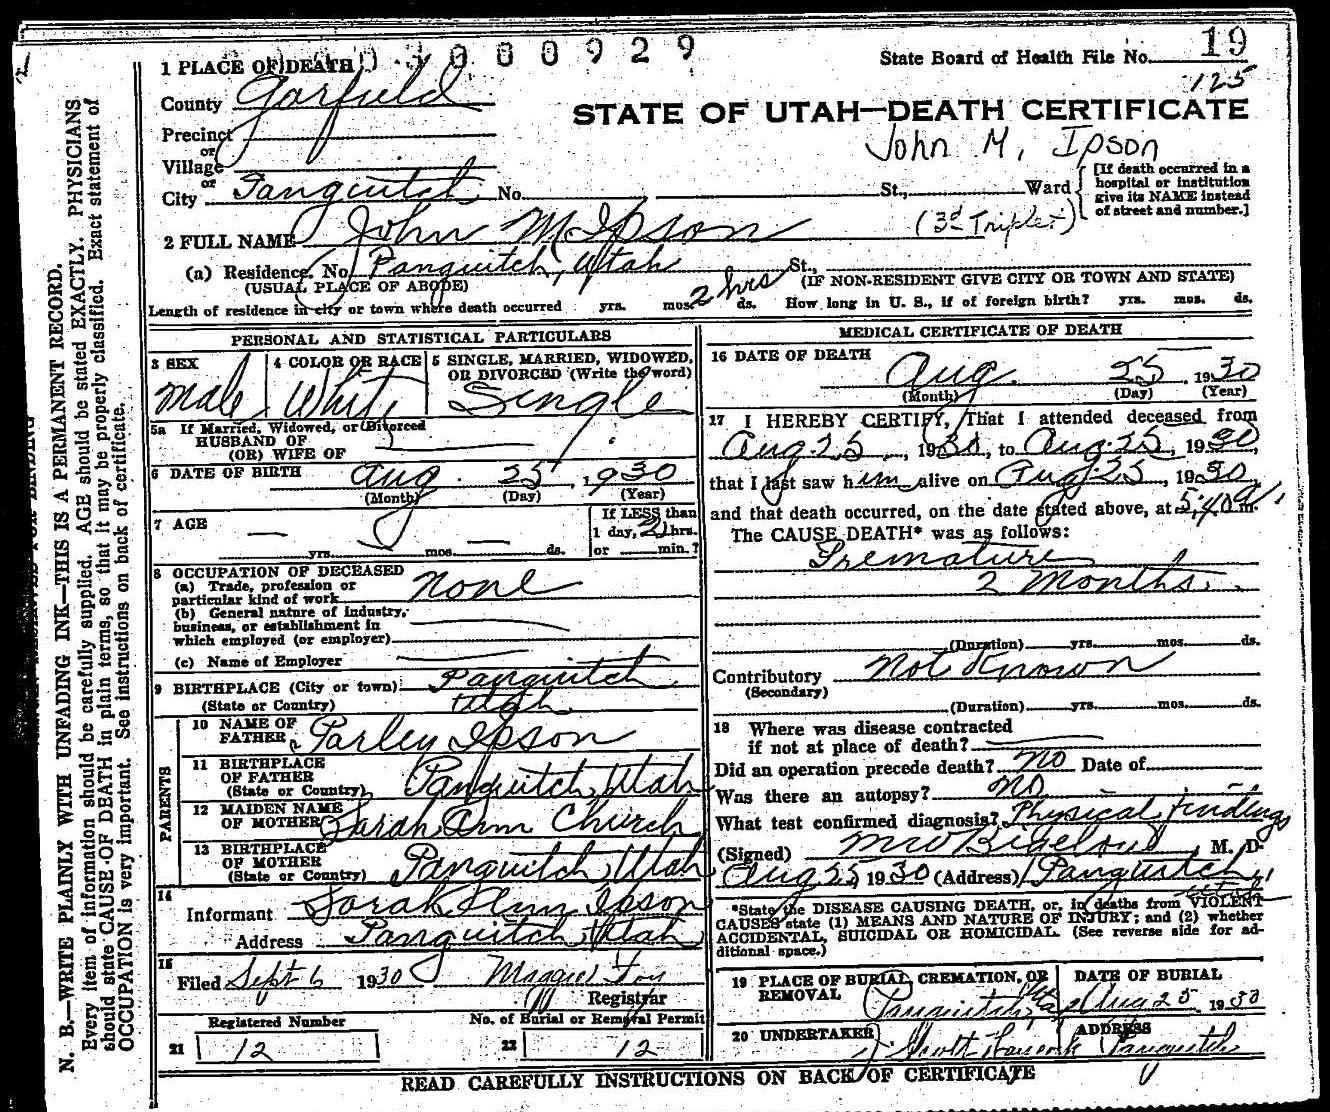 0 0 0 9 2 9
State Board of Health File No. 19
125
1 PLACE OF DEATH
County Garfield
STATE OF UTAH—DEATH CERTIFICATE
John M. Ipson
Precinct
or
Village
or
City Panguitch No. St., Ward
[If death occurred in a
hospital or institution
give its NAME instead
of street and number.]
2 FULL NAME John M Ipson (3d Triplet)
(a) Residence. No. Panguitch, Utah St.,
(USUAL PLACE OF ABODE) (IF NON-RESIDENT GIVE CITY OR TOWN AND STATE)
Length of residence in city or town where death occurred yrs. mos. 2 hrs ds. How long in U. S., if of foreign birth? yrs. mos. ds.
PERSONAL AND STATISTICAL PARTICULARS
3 SEX Male
4 COLOR OR RACE White
5 SINGLE, MARRIED, WIDOWED,
OR DIVORCED (Write the word)
Single
5a If Married, Widowed, or Divorced
HUSBAND OF
(OR) WIFE OF
6 DATE OF BIRTH Aug. 25 1930
(Month) (Day) (Year)
7 AGE
yrs. mos. ds.
If LESS than
1 day, 2 hrs.
or min.?
8 OCCUPATION OF DECEASED
(a) Trade, profession or
particular kind of work None
(b) General nature of industry,
business, or establishment in
which employed (or employer)
(c) Name of Employer
9 BIRTHPLACE (City or town) Panguitch
(State or Country) Utah
PARENTS
10 NAME OF
FATHER Parley Ipson
11 BIRTHPLACE
OF FATHER
(State or Country) Panguitch, Utah
12 MAIDEN NAME
OF MOTHER Sarah Ann Church
13 BIRTHPLACE
OF MOTHER
(State or Country) Panguitch, Utah
14
Informant Sarah Ann Ipson
Address Panguitch, Utah
15
Filed Sept 6 1930 Maggie Foy
Registrar
Registered Number No. of Burial or Removal Permit
21 12 22 12
MEDICAL CERTIFICATE OF DEATH
16 DATE OF DEATH
Aug. 25, 1930
(Month) (Day) (Year)
17 I HEREBY CERTIFY, That I attended deceased from
Aug. 25, 1930, to Aug. 25, 1930,
that I last saw him alive on Aug. 25, 1930
and that death occurred, on the date stated above, at 5:40 a. m.
The CAUSE DEATH* was as follows:
Premature
2 Months.
(Duration) yrs. mos. ds.
Contributory Not Known
(Secondary)
(Duration) yrs. mos. ds.
18 Where was disease contracted
if not at place of death?
Did an operation precede death? No Date of
Was there an autopsy? No
What test confirmed diagnosis? Physical findings
(Signed) M W Bigelow, M. D.
Aug 25, 1930 (Address) Panguitch,
Utah
*State the DISEASE CAUSING DEATH, or, in deaths from VIOLENT
CAUSES state (1) MEANS AND NATURE OF INJURY; and (2) whether
ACCIDENTAL, SUICIDAL OR HOMICIDAL. (See reverse side for ad-
ditional space.)
19 PLACE OF BURIAL, CREMATION, OR
REMOVAL
Panguitch, Utah
DATE OF BURIAL
Aug 25 1930
20 UNDERTAKER
ADDRESS
Panguitch
READ CAREFULLY INSTRUCTIONS ON BACK OF CERTIFICATE
N. B.—WRITE PLAINLY WITH UNFADING INK—THIS IS A PERMANENT RECORD.
Every item of information should be carefully supplied. AGE should be stated EXACTLY. PHYSICIANS
should state CAUSE OF DEATH in plain terms, so that it may be properly classified. Exact statement of
OCCUPATION is very important. See instructions on back of certificate.